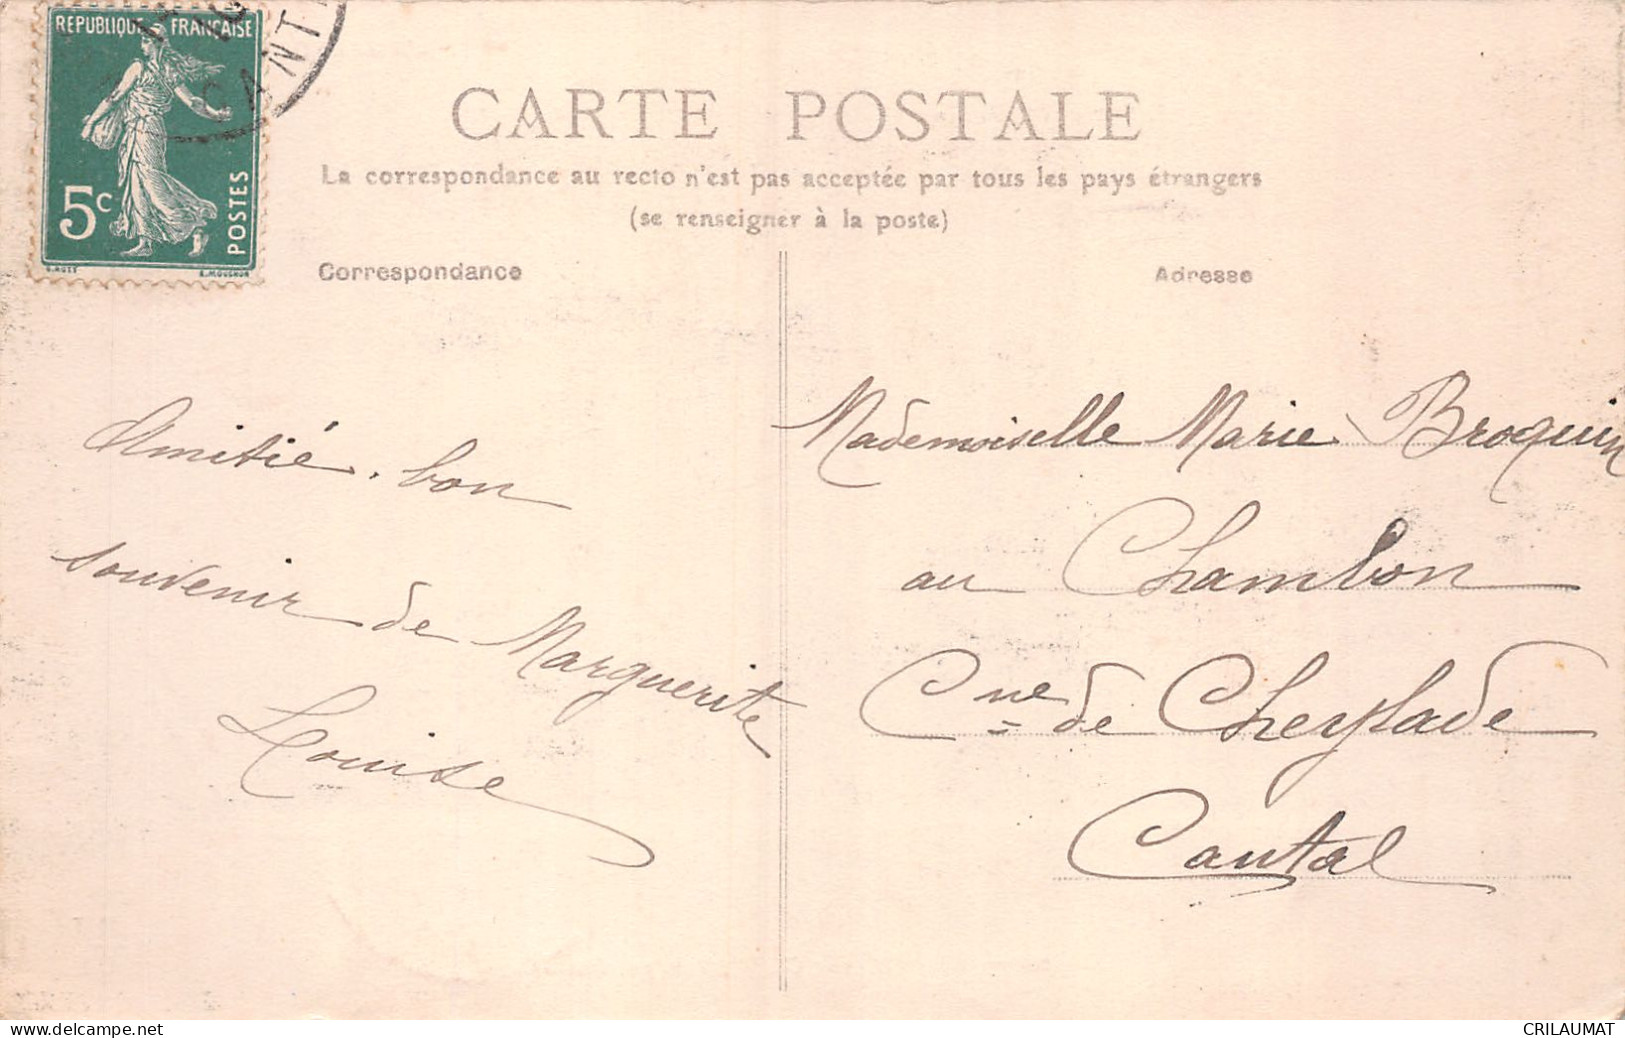 REPUBLIQUE FRANÇAISE
5c
POSTES
CANT
CARTE POSTALE
La correspondance au recto n'est pas acceptée par tous les pays étrangers
(se renseigner à la poste)
Correspondance
Adresse
Amitié. bon
souvenir de Marguerite
Louise
Mademoiselle Marie Broquin
au Chambon
Cne de Cheylade
Cantal
www.delcampe.net
CRILAUMAT